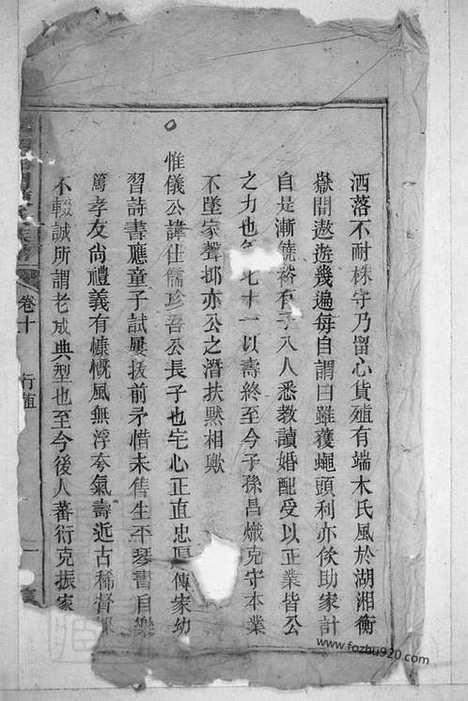 洒落不耐株守乃留心貨殖有端木氏風於湖湘衡
嶽間遨遊幾遍每自謂曰雖獲蠅頭利亦俟助家計
自是漸饒裕有子八人悉教讀婚配受以正業皆公
之力也年七十一以壽終至今子孫昌熾克守本業
不墜家聲抑亦公之潛扶黙相歟
惟儀公諱仕儒珍吾公長子也宅心正直忠厚傳家幼
習詩書應童子試屢拔前矛惜未售生平琴書自樂
篤孝友尚禮義有慷慨風無浮夸氣壽近古稀督課
不輟誠所謂老成典型也至今後人蕃衍克振家
卷十
行殖
www.fozhu920.com